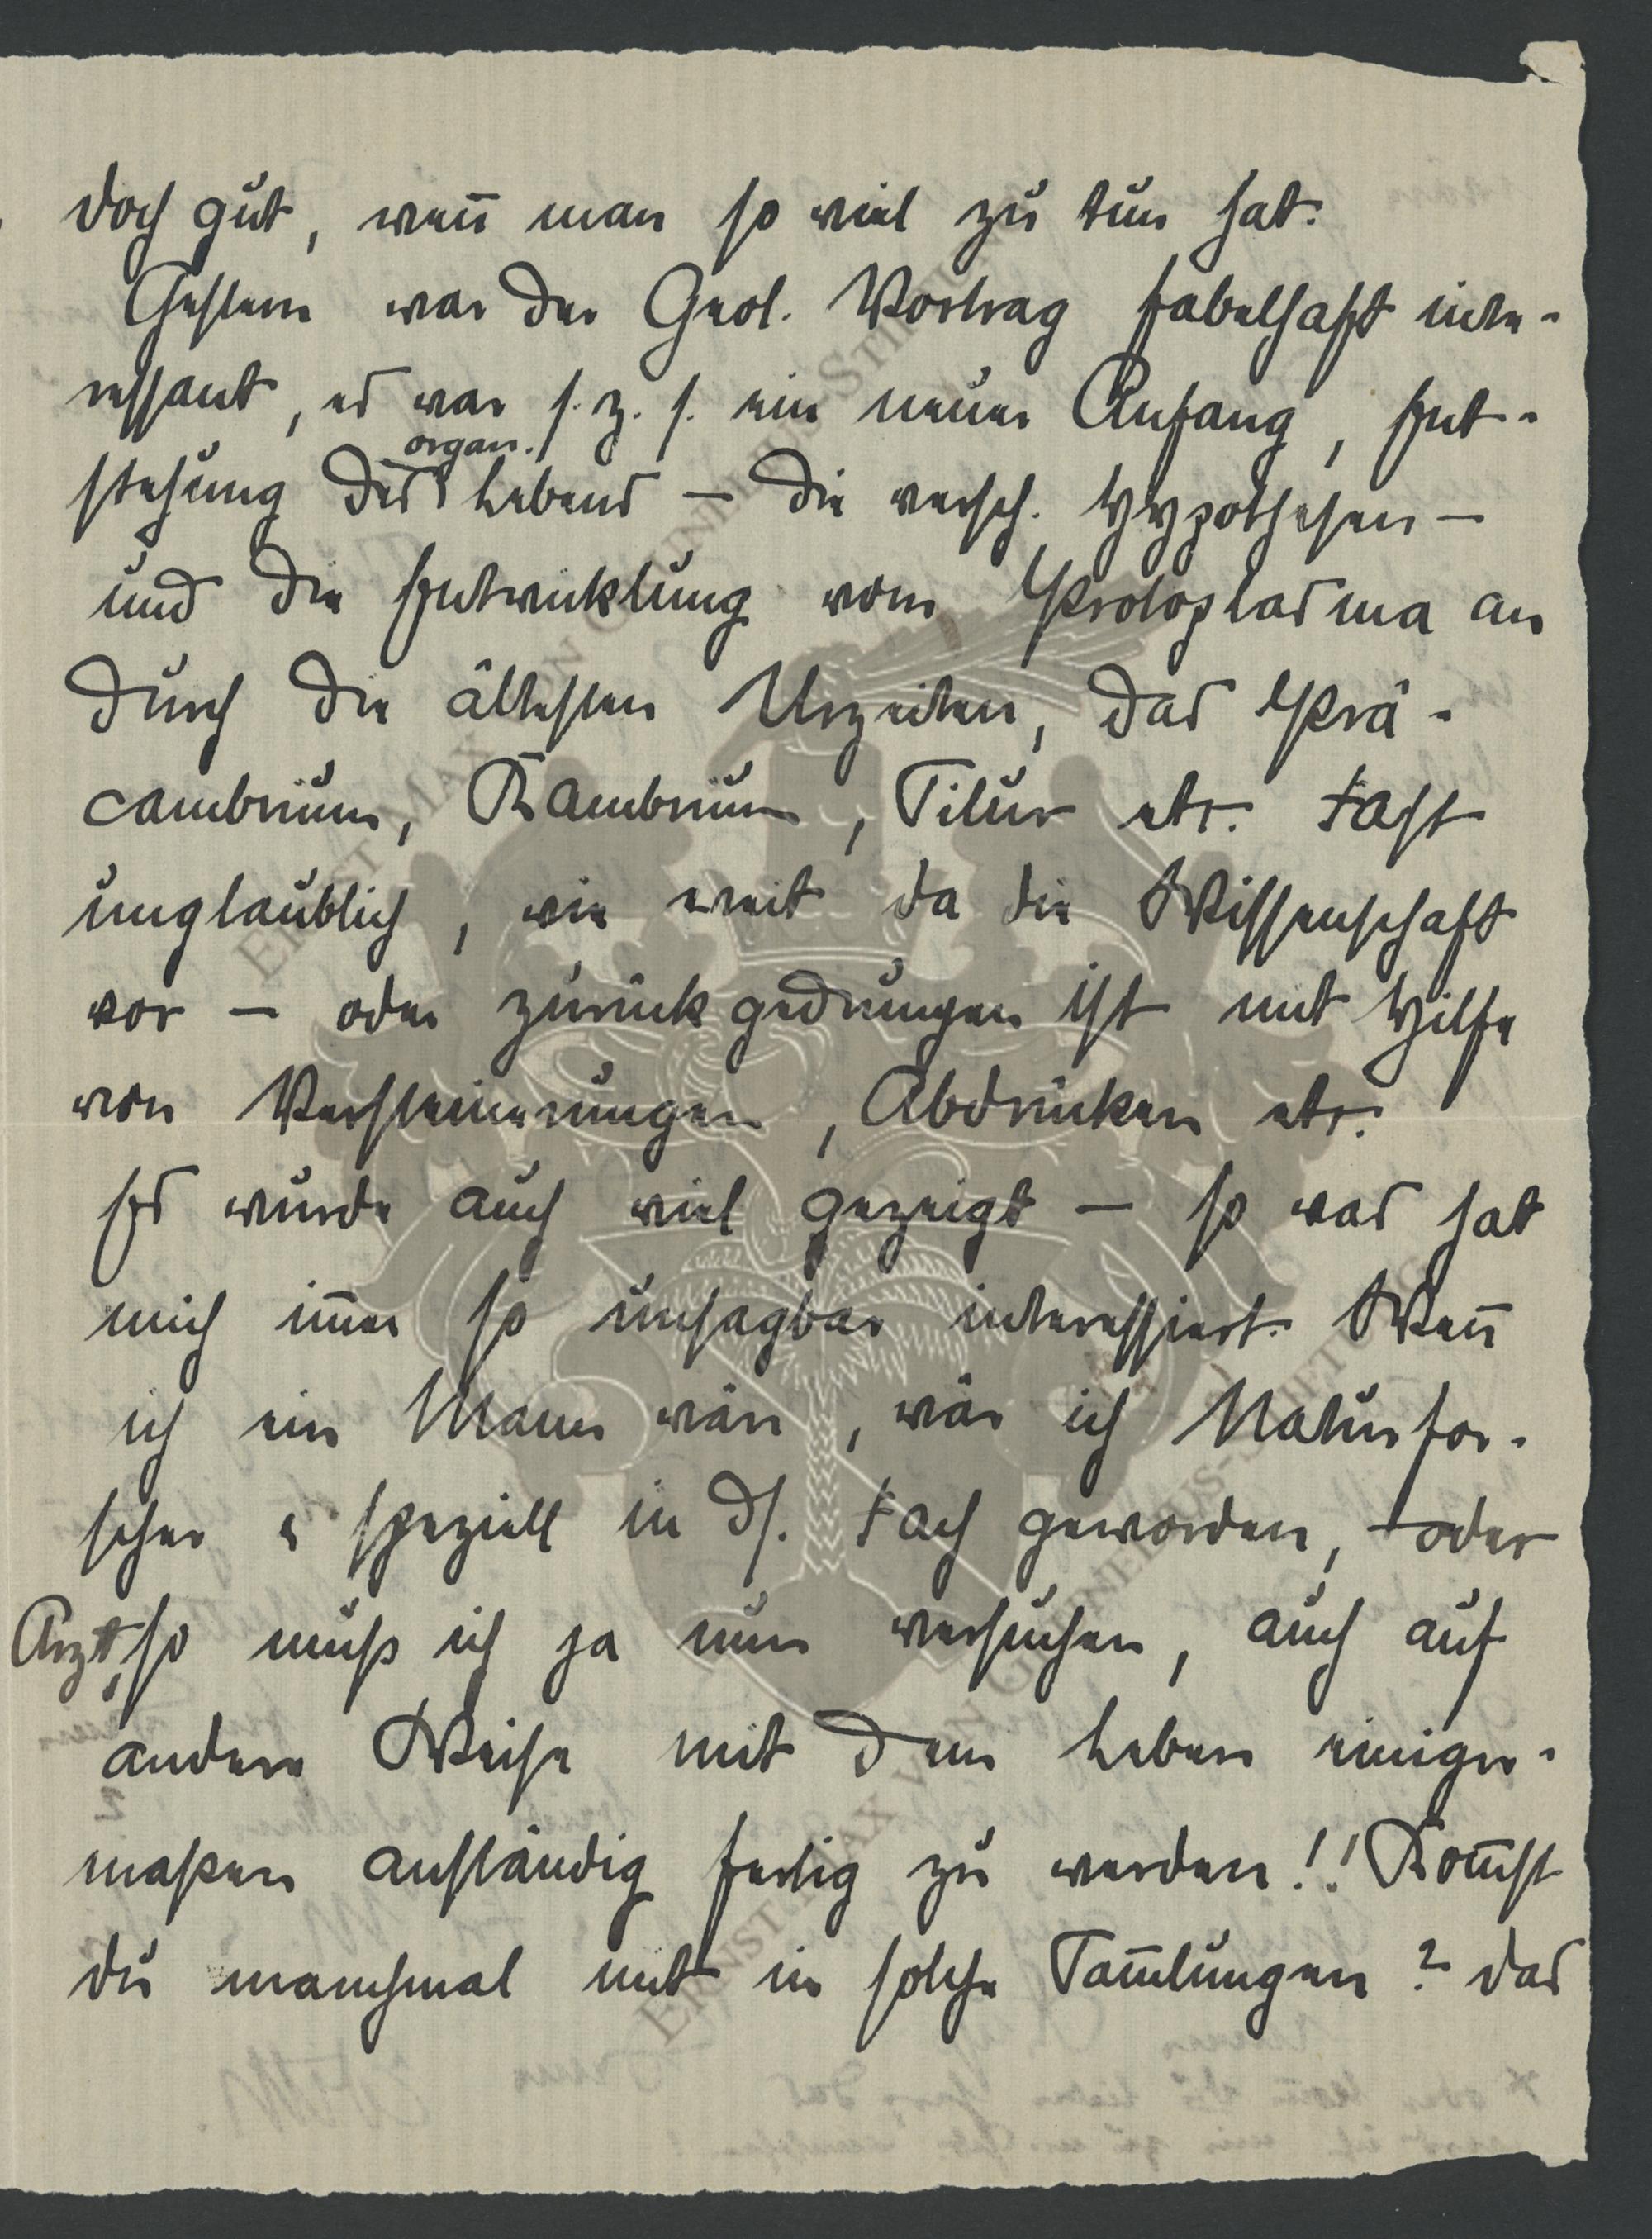 doch gut, wen̄ man so viel zu tun hat.
Gestern war der Geol. Vortrag fabelhaft inte-
ressant, es war s. z. s. ein neuer Anfang, Ent-
organ.
stehung des Lebens – die versch. Hypothesen –
und die Entwicklung vom Protoplasma an
durch die ältesten Urzeiten, das Prä-
cambrium, Kambrium, Silur etc. Fast
unglaublich, wie weit da die Wissenschaft
vor – oder zurück gedrungen ist mit Hilfe
von Versteinerungen, Abdrücken etc.
Es wurde auch viel gezeigt – so was hat
mich im̄er so unsagbar interessiert. Wen̄
ich ein Mann wär, wär ich Naturfor-
scher u speziell in ds. Fach geworden, oder
Arzt, so muß ich ja nun versuchen, auch auf
andere Weise mit dem Leben einiger-
maßen anständig fertig zu werden!! Kom̄st
du manchmal mit in solche Sam̄lungen? das
ERNST MAX VON GRUNELIUS-STIFTUNG
ERNST MAX VON GRUNELIUS-STIFTUNG